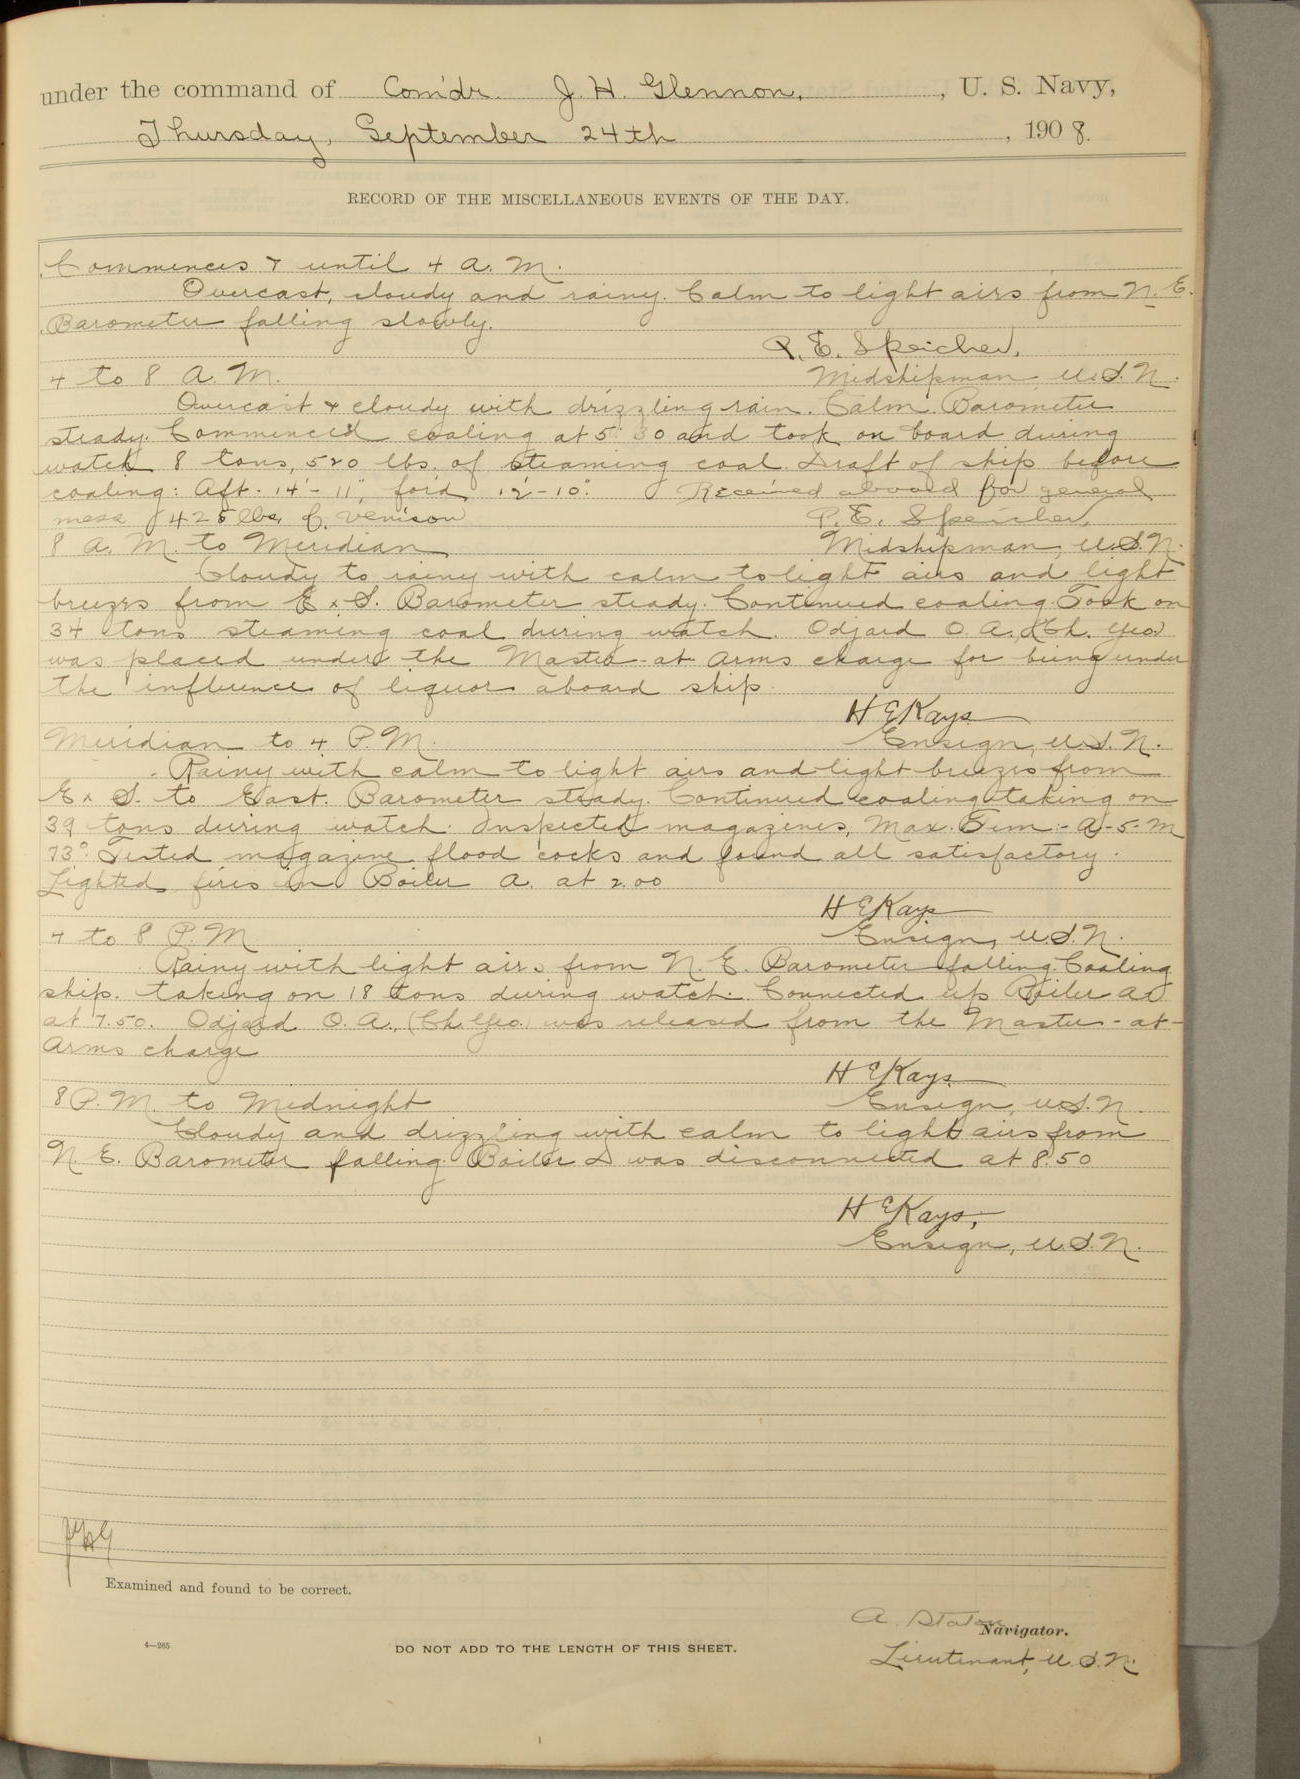 under the command of Comdr. J. H. Glennon, , U. S. Navy,
Thursday, September 24th , 1908.
RECORD OF THE MISCELLANEOUS EVENTS OF THE DAY.
Commences & until 4 A. M.
Overcast, cloudy and rainy. Calm to light airs from N. E.
Barometer falling slowly.
P. E. Speicher,
4 to 8 A. M. Midshipman, U.S.N.
Overcast & cloudy with drizzling rain. Calm. Barometer
steady. Commenced coaling at 5:30 and took on board during
watch 8 tons, 520 lbs. of steaming coal. Draft of ship before
coaling: Aft. 14'-11", for'd 12'-10". Received aboard for general
mess 425 lbs. of venison P. E. Speicher,
8 A. M. to Meridian Midshipman, U.S.N.
Cloudy to rainy with calm to light airs and light
breezes from E x S. Barometer steady. Continued coaling. Took on
34 tons steaming coal during watch. Odjard O. A. (Ch. Yeo)
was placed under the Master-at-Arms charge for being under
the influence of liquor aboard ship.
H E Kays
Meridian to 4 P. M. Ensign, U.S.N.
Rainy with calm to light airs and light breezes from
E x S. to East. Barometer steady. Continued coaling taking on
39 tons during watch. Inspected magazines, Max. Tem:- A-5-M
73°. Tested magazine flood cocks and found all satisfactory.
Lighted fires in Boiler A. at 2.00
H E Kays
4 to 8 P. M. Ensign, U.S.N.
Rainy with light airs from N. E. Barometer falling. Coaling
ship. taking on 18 tons during watch. Connected up Boiler A
at 7.50. Odjard O. A., (Ch. Yeo.) was released from the Master-at-
Arms charge
H E Kays.
8 P. M. to Midnight Ensign, U.S.N.
Cloudy and drizzling with calm to light airs from
N. E. Barometer falling. Boiler D was disconnected at 8.50
H E Kays,
Ensign, U.S.N.
JHG
Examined and found to be correct.
A. Staton
Navigator.
4—265 DO NOT ADD TO THE LENGTH OF THIS SHEET.
Lieutenant, U.S.N.